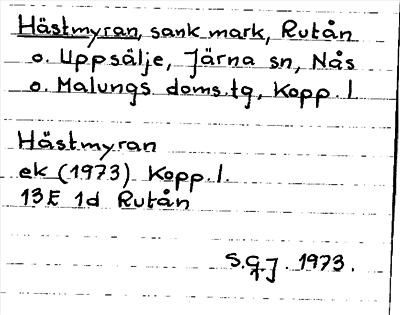 Hästmyran, sank mark, Rutån
o. Uppsälje, Järna sn, Nås
o. Malungs doms.tg, Kopp. l
Hästmyran
ek (1973) Kopp. l.
13E 1d Rutån
S.G.J. 1973.